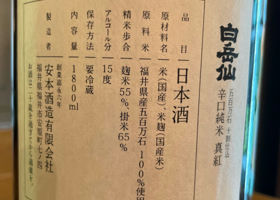 白岳仙
五百万石 十割仕込
辛口純米 真紅
品目 日本酒
原材料名 米(国産)、米麹(国産米)
原料米 福井県産五百万石 100%使用
精米歩合 麹米55%、掛米65%
アルコール分 15度
保存方法 要冷蔵
内容量 1800ml
創業嘉永六年
製造者 安本酒造有限会社
福井県福井市安原町七ノ四